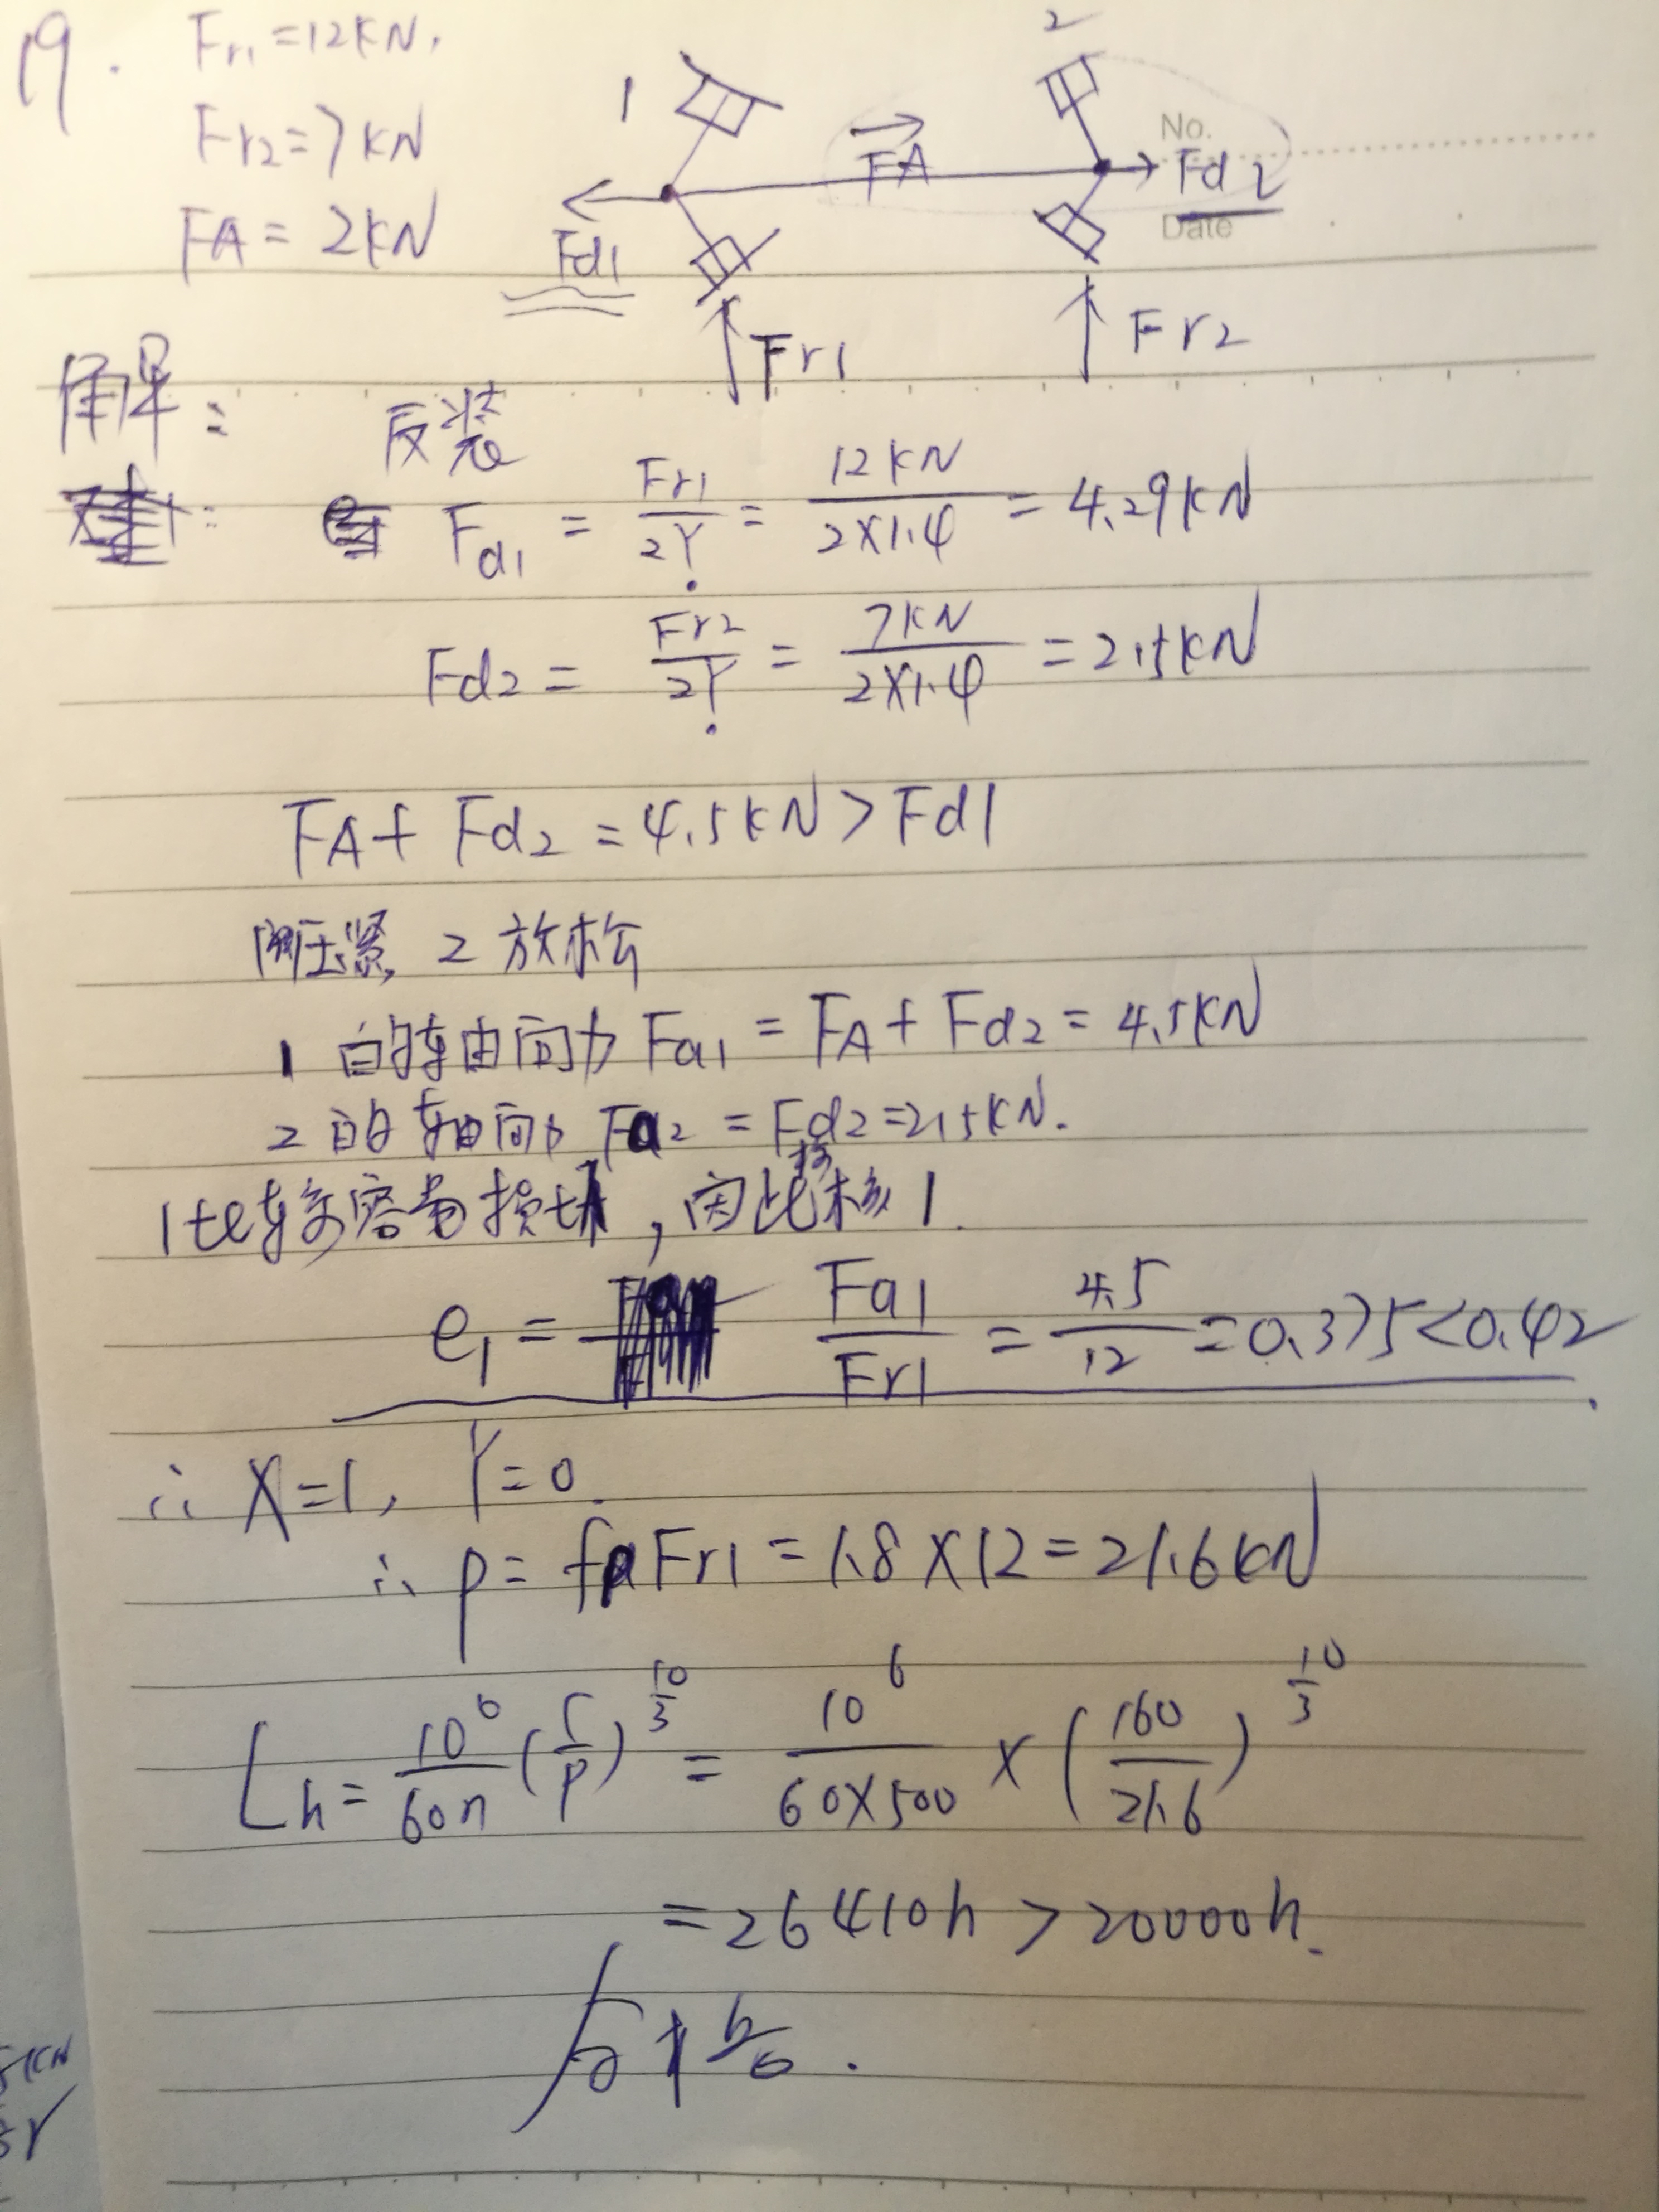 19. Fr1=12KN,
Fr2=7KN
FA=2KN
1
2
FA
Fd1
Fd2
No.
Date
Fr1
Fr2
解:
反装
Fd1 = Fr1/2Y = 12KN/2×1.4 = 4.29KN
Fd2 = Fr2/2Y = 7KN/2×1.4 = 2.5KN
FA+Fd2=4.5KN>Fd1
压紧, 2放松
1的轴向力Fa1=FA+Fd2=4.5KN
2的轴向力Fa2=Fd2=2.5KN.
1比较容易损坏,因此校核1.
e1= Fa1/Fr1 = 4.5/12 = 0.375<0.42
∴X=1, Y=0.
∴P=fpFr1=1.8×12=21.6KN
Lh= 10^6/60n (C/P)^10/3 = 10^6/60×500 × (160/21.6)^10/3
=26410h>20000h.
合格.
KN